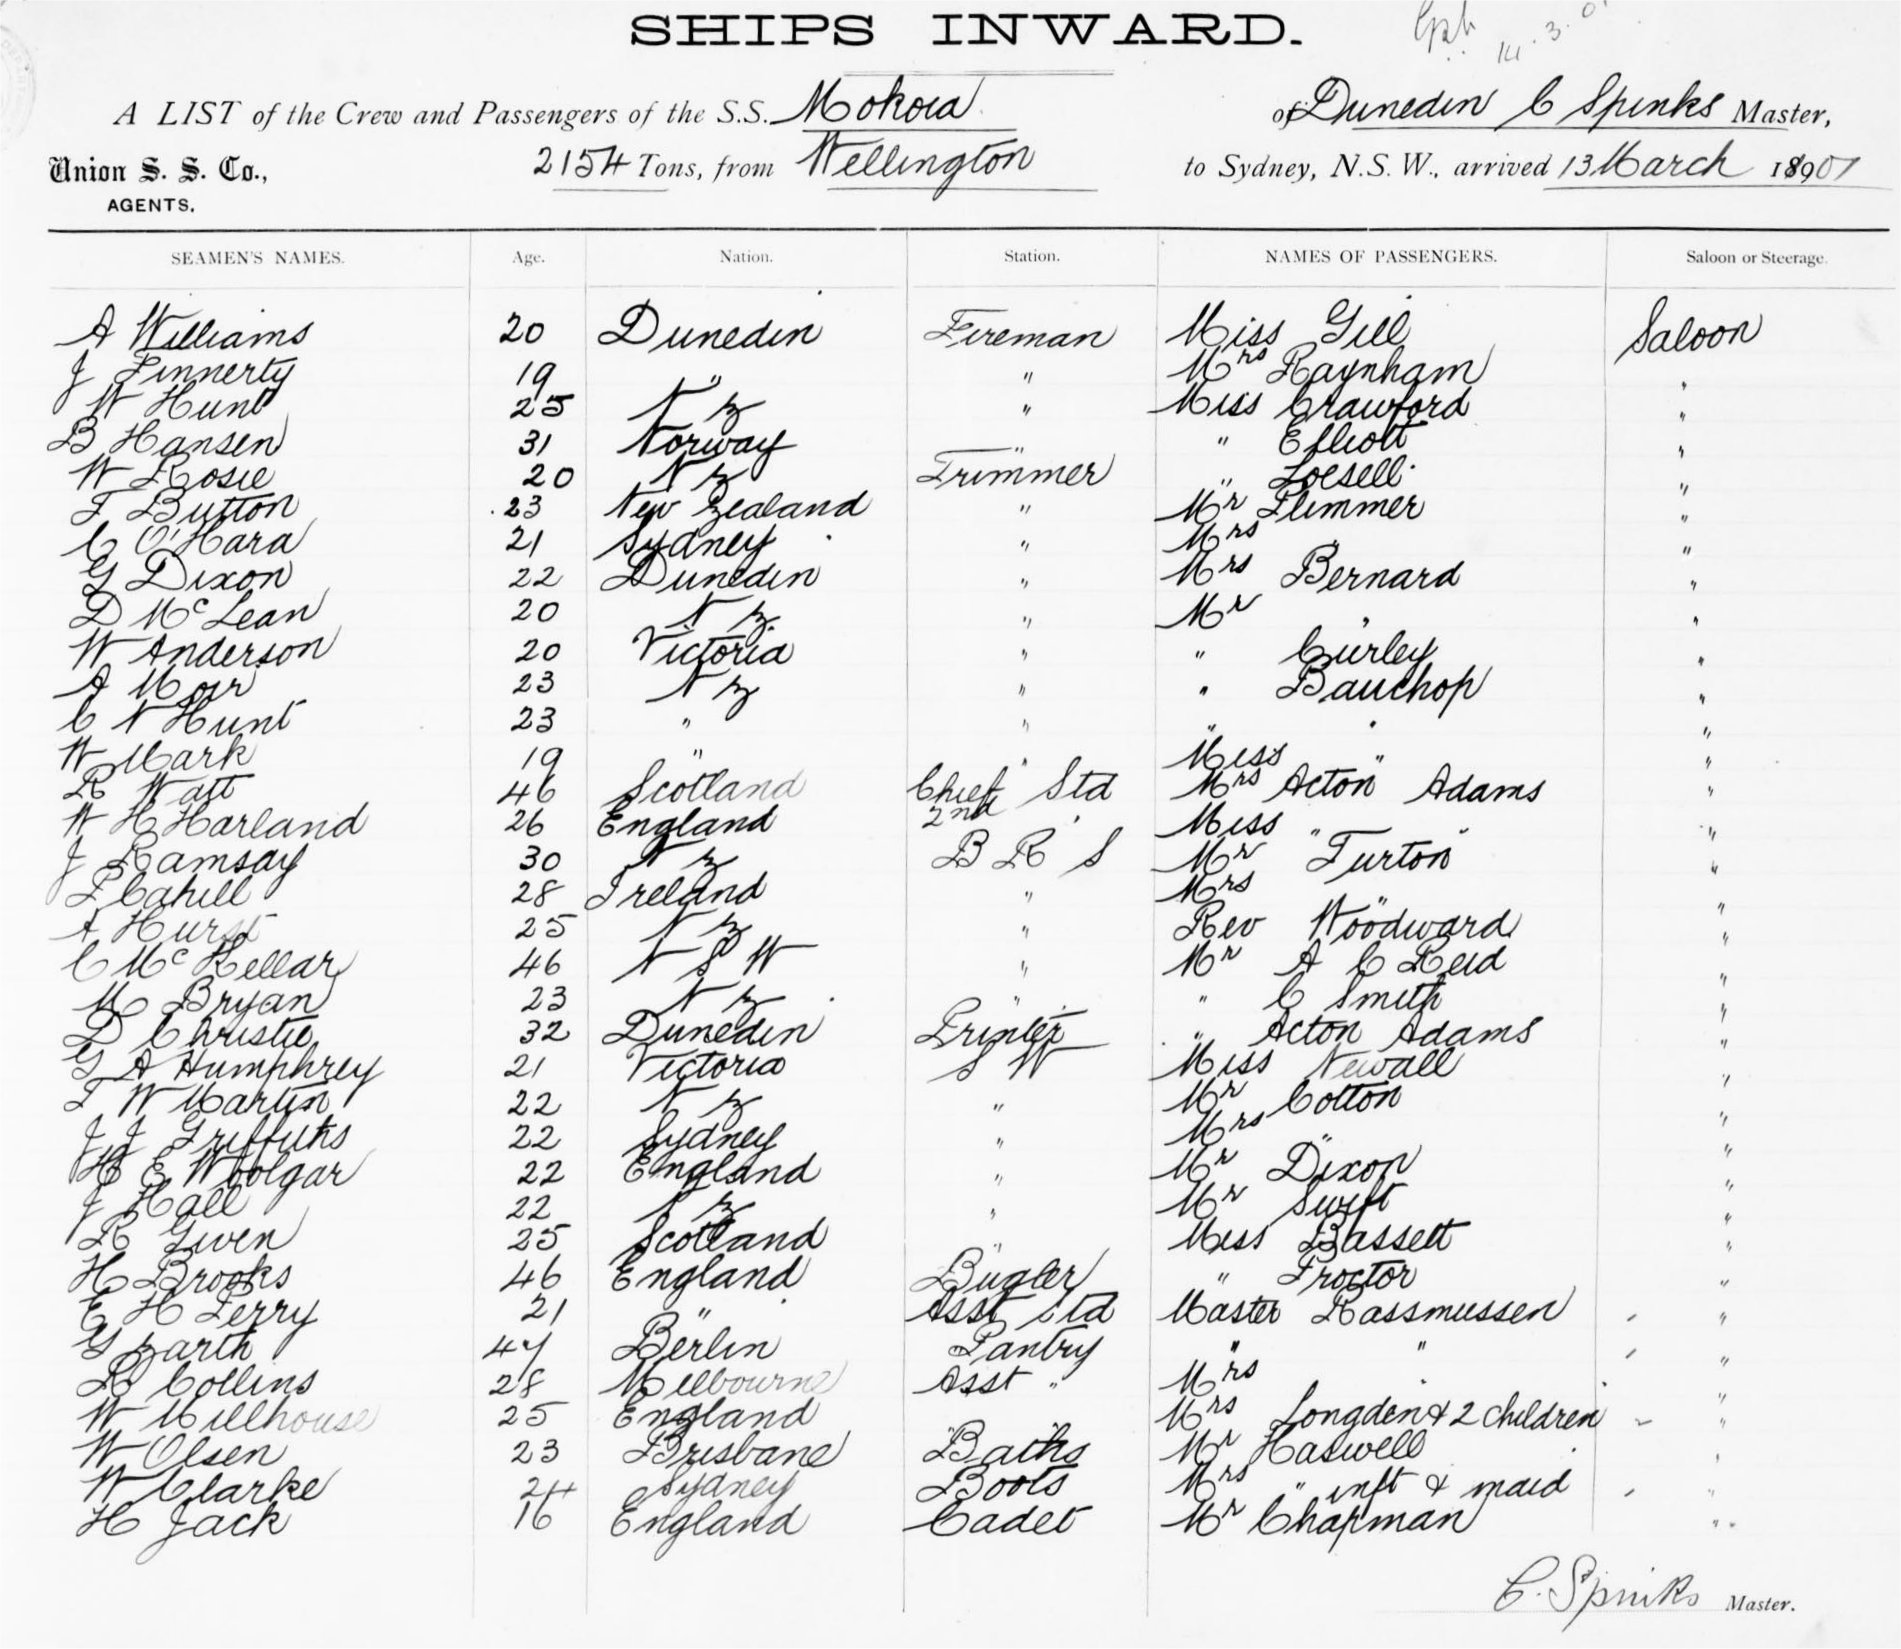 SHIPS INWARD.
14.3.0
A LIST of the Crew and Passengers of the S.S. Mokoia of Dunedin C Spinks Master,
Union S. S. Co., 2154 Tons, from Wellington to Sydney, N.S.W., arrived 13 March 18901
AGENTS.
SEAMEN'S NAMES. Age. Nation. Station. NAMES OF PASSENGERS. Saloon or Steerage.
A Williams 20 Dunedin Fireman Miss Gill Saloon
J Finnerty 19 " " Mrs Raynham "
W Hunt 25 N Z " Miss Crawford "
B Hansen 31 Norway " " Elliott "
W Rosie 20 N Z Trimmer " Loesell "
F Button 23 New Zealand " Mr Flimmer "
C O'Hara 21 Sydney " Mrs "
G Dixon 22 Dunedin " Mrs Bernard "
D McLean 20 N Z. " Mr " "
W Anderson 20 Victoria " " Curley "
A Moir 23 N Z " " Bauchop "
C N Hunt 23 " " " " "
W Mark 19 " " Miss " "
R Watt 46 Scotland Chief Std Mrs Acton Adams "
W H Harland 26 England 2nd " Miss " " "
J Ramsay 30 N Z B R S Mr Turton "
P Cahill 28 Ireland " Mrs " "
A Hurst 25 N Z " Rev Woodward "
C McKellar 46 N S W " Mr A C Reid "
M Bryan 23 N Z " " C Smith "
D Christie 32 Dunedin Printer " Acton Adams "
G A Humphrey 21 Victoria S W Miss Newall "
F W Martin 22 N Z " Mr Cotton "
J J Griffiths 22 Sydney " Mrs " "
H E Woolgar 22 England " Mr Dixon "
J Hall 22 N Z " Mr Swift "
R Given 25 Scotland " Miss Bassett "
H Brooks 46 England Bugler " Proctor "
E H Perry 21 " Asst Std Master Rassmussen "
G Barth 47 Berlin Pantry " " "
R Collins 28 Melbourne Asst " Mrs " "
W Millhouse 25 England " Mrs Longden & 2 children "
W Olsen 23 Brisbane Baths Mr Haswell "
W Clarke 24 Sydney Boots Mrs " inft & maid "
H Jack 16 England Cadet Mr Chapman "
C. Spinks Master.